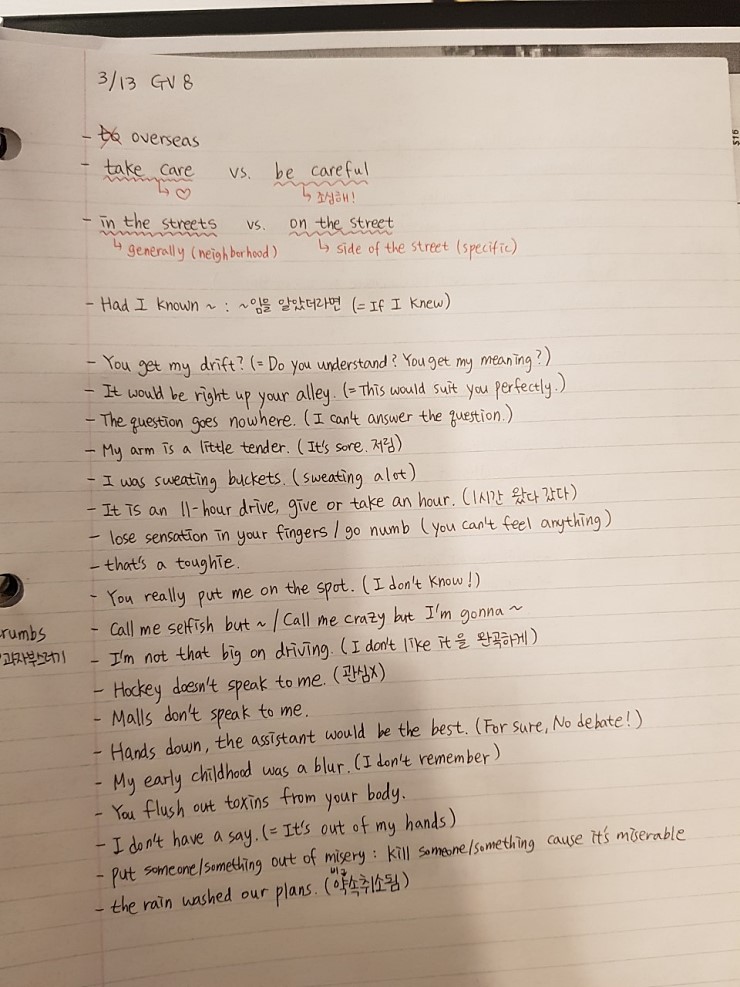 3/13 GV 8
- to overseas
- take care vs. be careful
↳ ♡ ↳ 조심해!
- in the streets vs. on the street
↳ generally (neighborhood) ↳ side of the street (specific)
- Had I known ~ : ~임을 알았더라면 (= If I knew)
- You get my drift? (= Do you understand? You get my meaning?)
- It would be right up your alley. (= This would suit you perfectly.)
- The question goes nowhere. (I can't answer the question.)
- My arm is a little tender. (It's sore. 저림)
- I was sweating buckets. (sweating alot)
- It is an 11-hour drive, give or take an hour. (1시간 왔다 갔다)
- lose sensation in your fingers / go numb (you can't feel anything)
- that's a toughie.
- You really put me on the spot. (I don't know!)
- Call me selfish but ~ / Call me crazy but I'm gonna ~
- I'm not that big on driving. (I don't like it을 완곡하게)
- Hockey doesn't speak to me. (관심X)
- Malls don't speak to me.
- Hands down, the assistant would be the best. (For sure, No debate!)
- My early childhood was a blur. (I don't remember)
- You flush out toxins from your body.
- I don't have a say. (= It's out of my hands)
- put someone/something out of misery : kill someone/something cause it's miserable
- the rain washed our plans. (비로 약속취소됨)
rumbs
과자부스러기
$16